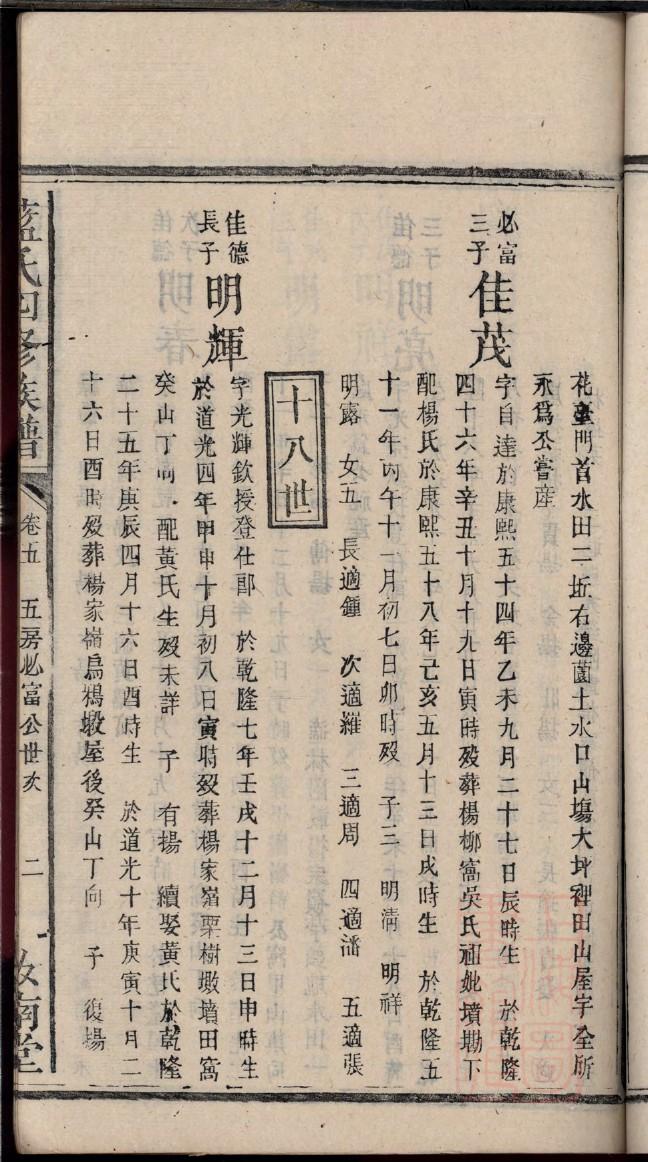 花臺門首水田二坵右邊園土水口山塲大坪裡田山屋字全所
永爲公嘗産
必富
三子
佳茂
字自達於康熙五十四年乙未九月二十七日辰時生 於乾隆
四十六年辛丑十月十九日寅時殁葬楊柳窩吳氏祖妣墳墈下
配楊氏於康熙五十八年己亥五月十三日戌時生 於乾隆五
十一年丙午十一月初七日卯時殁 子三 明清 明祥
明露 女五 長適鍾 次適羅 三適周 四適潘 五適張
十八世
佳德
長子
明輝
字光輝欽授登仕郎 於乾隆七年壬戌十二月十三日申時生
於道光四年甲申十月初八日寅時殁葬楊家嶺栗樹墩墳田窩
癸山丁向 配黃氏生殁未詳 子 有揚 續娶黃氏於乾隆
二十五年庚辰四月十六日酉時生 於道光十年庚寅十月二
十六日酉時殁葬楊家嶺烏鵶墩屋後癸山丁向 子 復揚
藍氏四修族譜
卷五 五房必富公世次 二
汝南堂